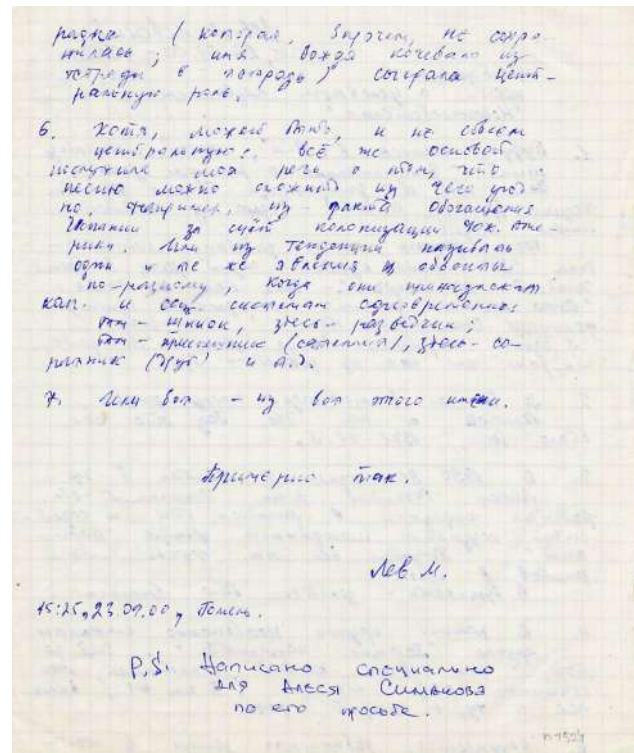 радка (которая, впрочем, не сохра-
нилась; имя вождя кочевало из
тетради в тетрадь) сыграла цент-
ральную роль.
6. Хотя, может быть, и не совсем
центральную, всё же основой
послужила моя речь о том, что
песню можно сложить из чего угод-
но, например, из факта обогащения
Испании за счёт колонизации Юж. Аме-
рики. Или из тенденции называть
одни и те же явления и объекты
по-разному, когда они принадлежат
кап. и соц. системам одновременно:
там - шпион, здесь - разведчик;
там - приспешник (сателлит), здесь - со-
ратник (друг) и т.д.
7. Или вот - из вот этого имени.
Примерно так.
Лев М.
15:25, 23.09.00, Гомель.
P.S. Написано специально
для Алеся Симакова
по его просьбе.